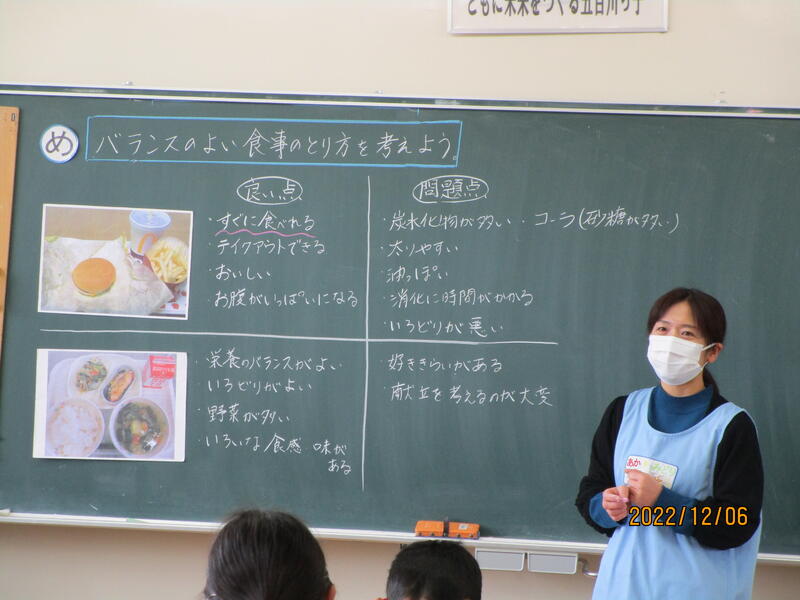 ともに未来をつくる五百川っ子
め バランスのよい食事のとり方を考えよう。
良い点
・すぐに食べれる
・テイクアウトできる
・おいしい
・お腹がいっぱいになる
問題点
・炭水化物が多い ・コーラ(砂糖が多い)
・太りやすい
・油っぽい
・消化に時間がかかる
・いろどりが悪い
・栄養のバランスがよい
・いろどりがよい
・野菜が多い
・いろいろな食感 味が
ある
・好ききらいがある
・献立を考えるのが大変
あか
2022/12/06